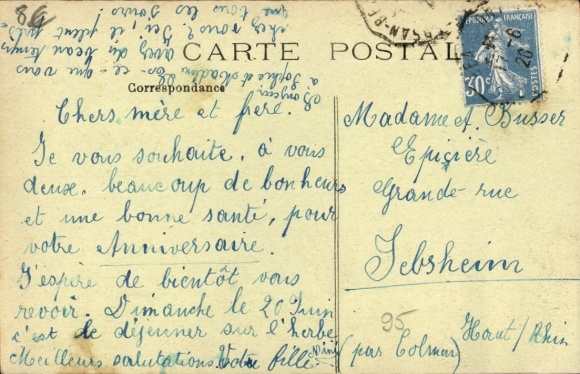 86
que tous les jours!
chez vous? Ici, il pleut pres-
avez du beau temps
Est-ce-que vous
à Sophie et Madeleine
Bonjour
CARTE POSTALE
Correspondance
Chers mère et frère.
Je vous souhaite, à vous
deux, beaucoup de bonheurs
et une bonne santé, pour
votre Anniversaire.
J'espère de bientôt vous
revoir. Dimanche le 20 Juin
c'est le déjeuner sur l'herbe
Meilleurs salutations Votre fille
REPUBLIQUE FRANÇAISE
30c
POSTES
Madame A. Busser
Epicière
Grande-rue
Jebsheim
95
(par Colmar) Haut/Rhin